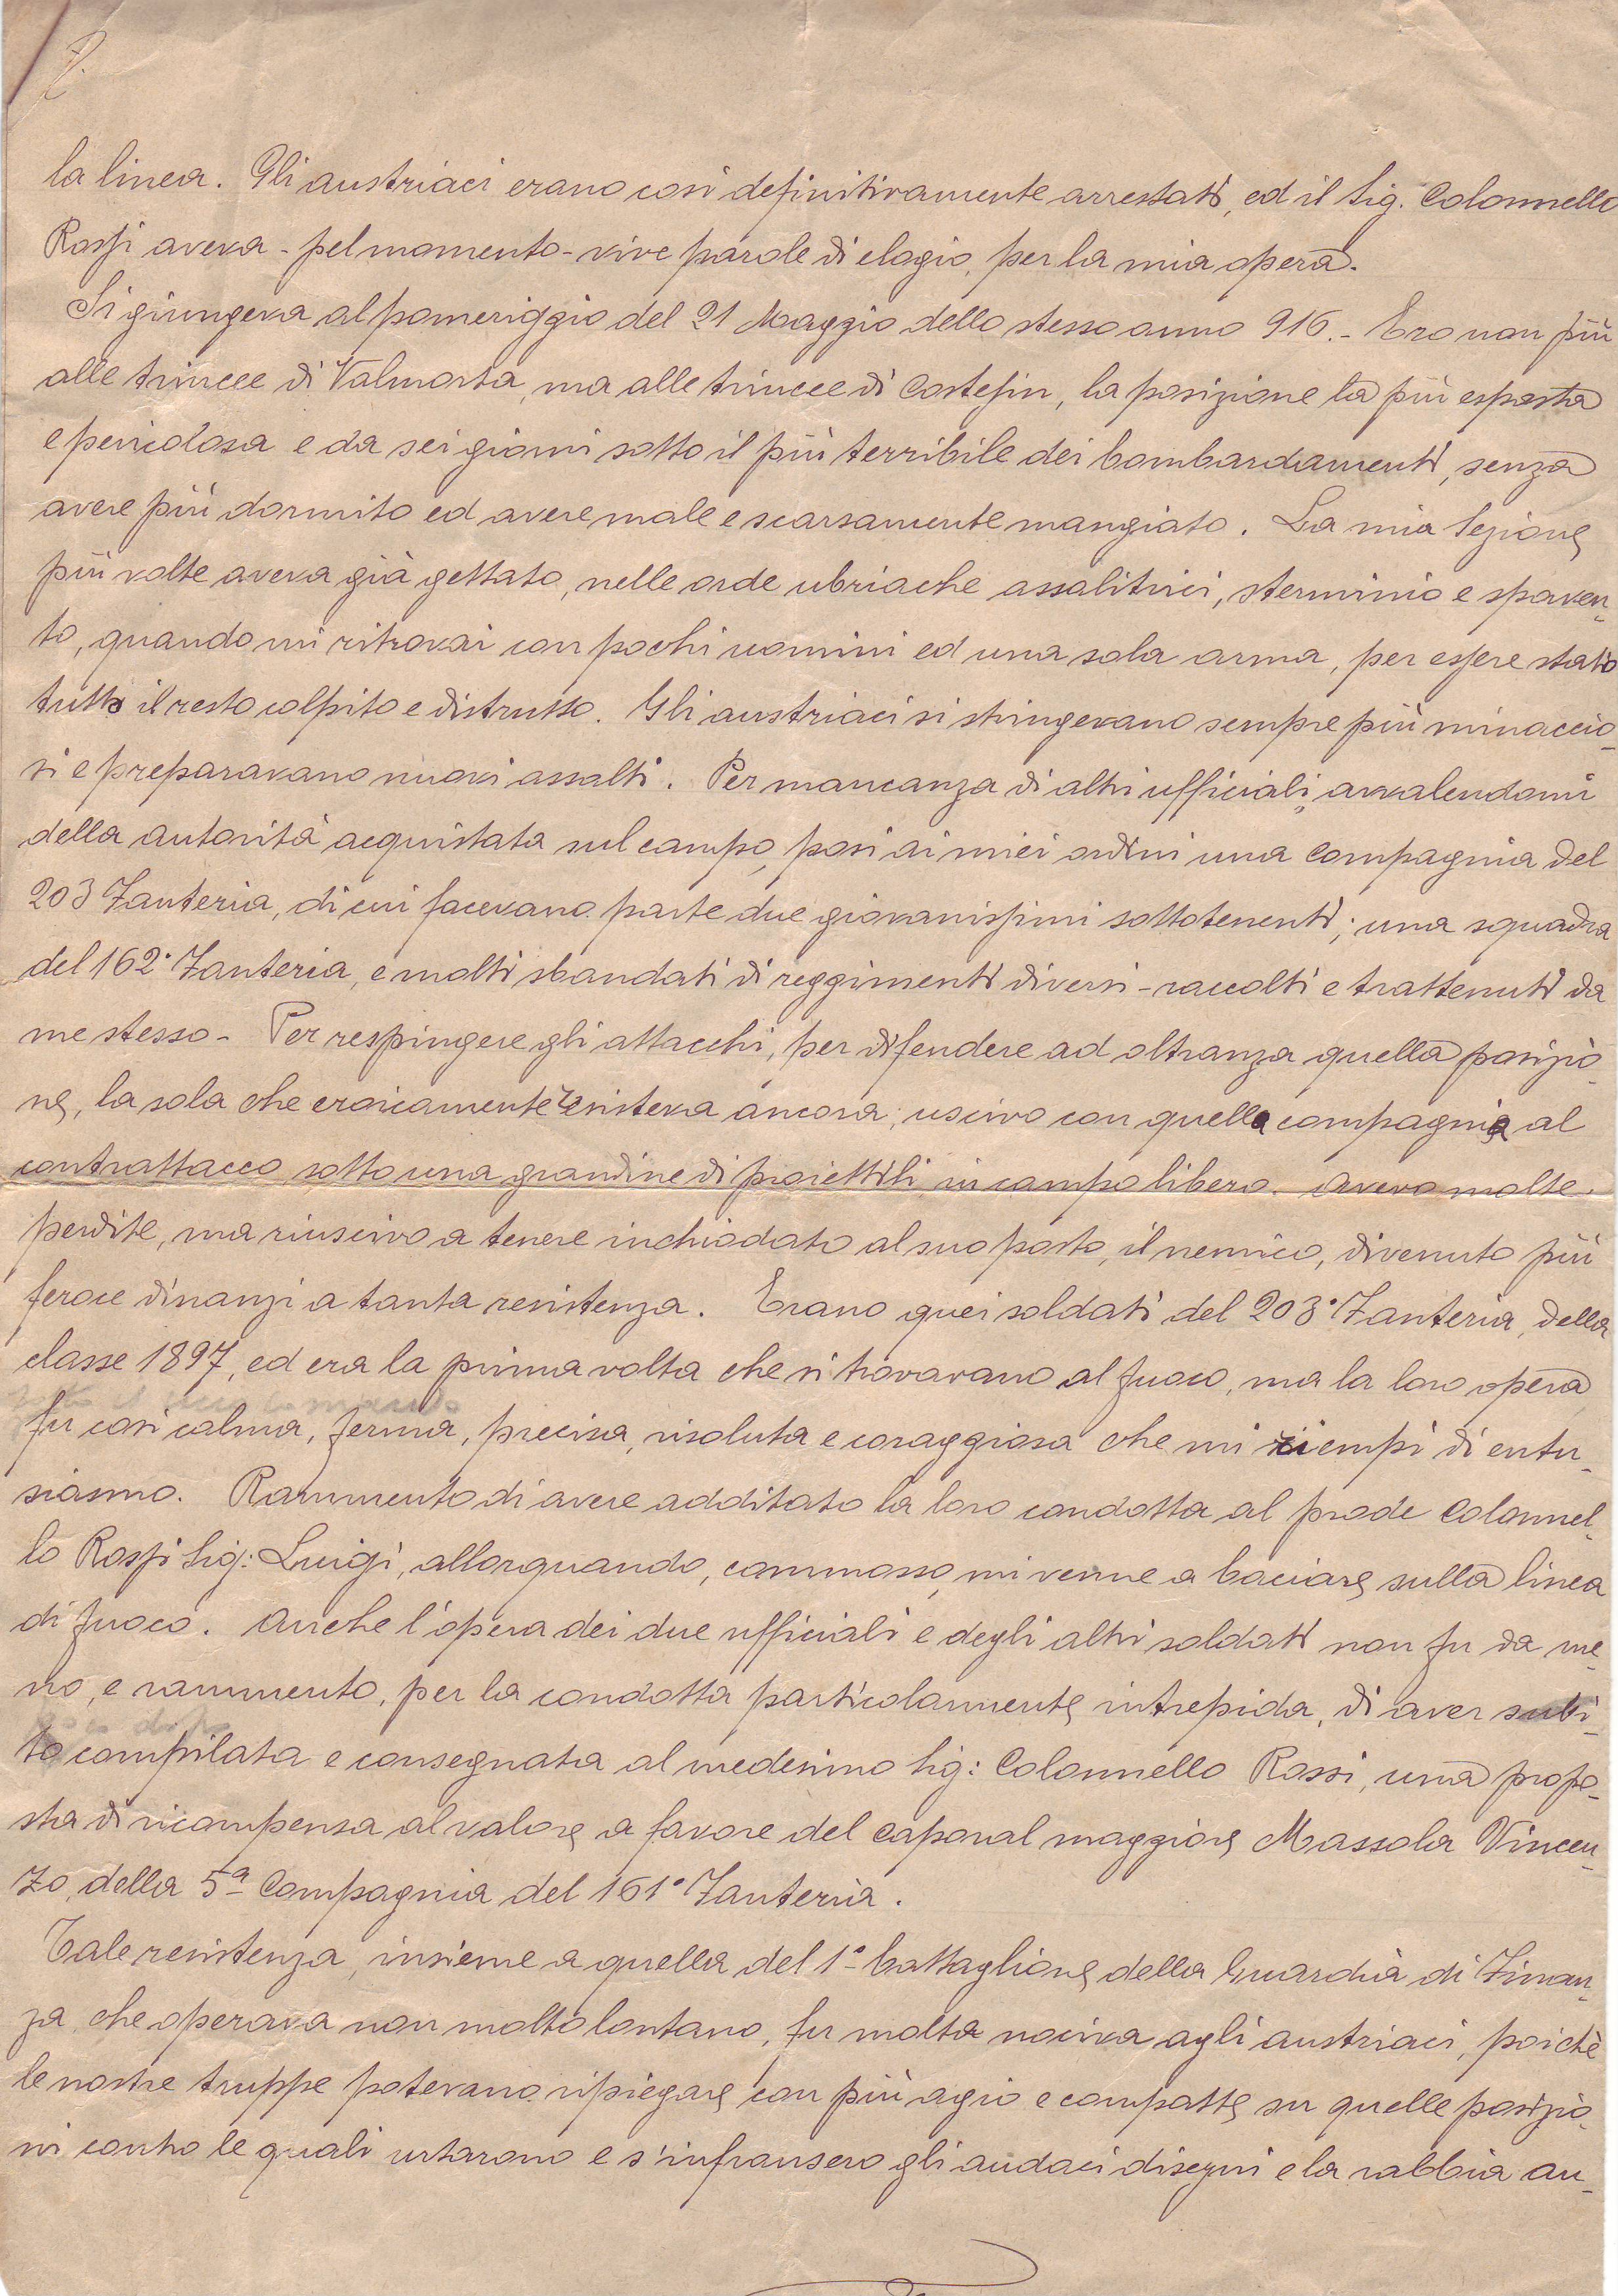 7.
la linea. Gli austriaci erano così definitivamente arrestati, ed il Sig. Colonnello
Rossi aveva - pel momento - vive parole di elogio, per la mia opera.
Si giungeva al pomeriggio del 21 Maggio dello stesso anno 916.- Ero non più
alle trincee di Valmorta, ma alle trincee di Costesin, la posizione la più esposta
e pericolosa e da sei giorni sotto il più terribile dei bombardamenti, senza
avere più dormito ed avere male e scarsamente mangiato. La mia Sezione
più volte aveva già gettato, nelle orde ubriache assalitrici, sterminio e spaven-
to, quando mi ritrovai con pochi uomini ed una sola arma, per essere stato
tutto il resto colpito e distrutto. Gli austriaci si stringevano sempre più minaccio-
si e preparavano nuovi assalti. Per mancanza di altri ufficiali, avvalendomi
della autorità acquistata sul campo, posi ai miei ordini una compagnia del
203 Fanteria, di cui facevano parte due giovanissimi sottotenenti; una squadra
del 162° Fanteria, e molti sbandati di reggimenti diversi - raccolti e trattenuti da
me stesso - Per respingere gli attacchi, per difendere ad oltranza quella posizio-
ne, la sola che eroicamente resisteva ancora; uscivo con quella compagnia al
contrattacco sotto una grandine di proiettili in campo libero. Avevo molte
perdite, ma riuscivo a tenere inchiodato al suo posto, il nemico, divenuto più
feroce dinanzi a tanta resistenza. Erano quei soldati del 203° Fanteria, della
classe 1897, ed era la prima volta che si trovavano al fuoco, ma la loro opera
fu così calma, ferma, precisa, risoluta e coraggiosa che mi riempì di entu-
siasmo. Rammento di avere additato la loro condotta al prode Colonnel-
lo Rossi Sig: Luigi, allorquando, commosso, mi venne a baciare sulla linea
di fuoco. Anche l'opera dei due ufficiali e degli altri soldati non fu da me-
no, e rammento, per la condotta particolarmente intrepida, di aver subi-
to compilata e consegnata al medesimo Sig: Colonnello Rossi, una propo-
sta di ricompensa al valore a favore del caporal maggiore Massola Vincen-
zo, della 5ª Compagnia del 161° Fanteria.
Tale resistenza, insieme a quella del 1° battaglione della Guardia di Finan-
za, che operava non molto lontano, fu molta nociva agli austriaci, poichè
le nostre truppe potevano ripiegare con più agio e compatte su quelle posizio-
ni contro le quali urtarono e s'infransero gli audaci disegni e la rabbia au-